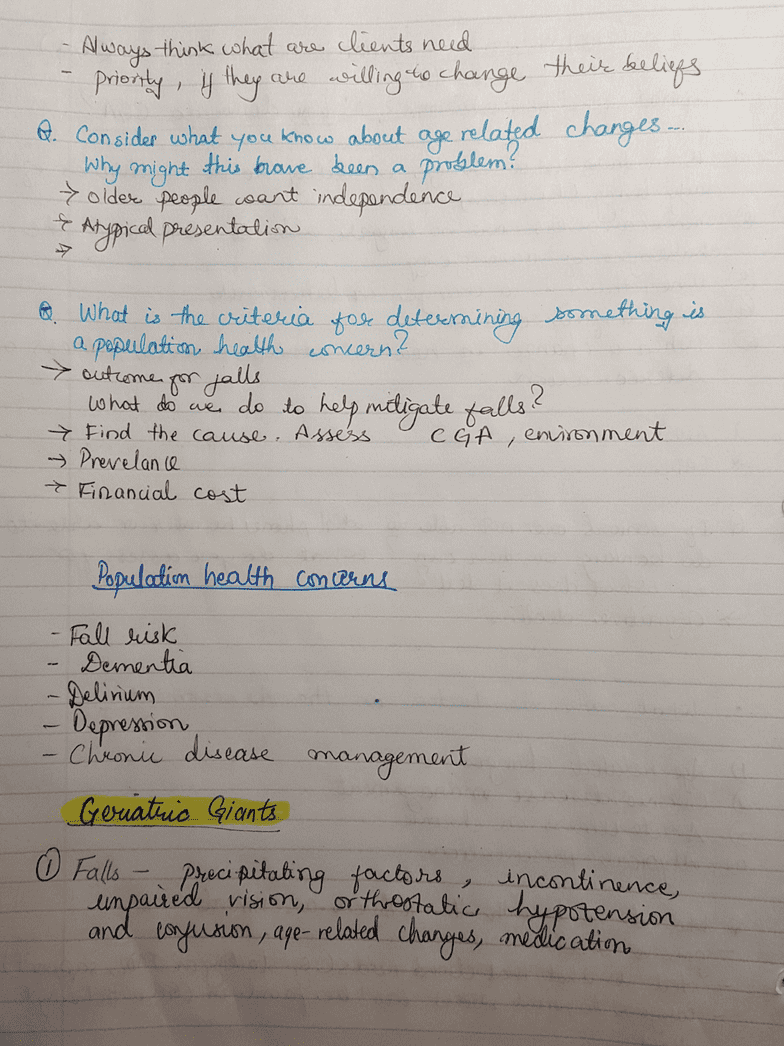 - Always think what are clients need
- priority, if they are willing to change their beliefs
Q. Consider what you know about age related changes...
Why might this have been a problem?
→ Older people want independence
→ Atypical presentation
→
Q. What is the criteria for determining something is
a population health concern?
→ outcome for falls
What do we do to help mitigate falls?
→ Find the cause. Assess CGA, environment
→ Prevelance
→ Financial cost
Population health concerns
- Fall risk
- Dementia
- Delirium
- Depression
- Chronic disease management
Geriatric Giants
① Falls - precipitating factors, incontinence,
impaired vision, orthrostatic hypotension
and confusion, age-related changes, medication